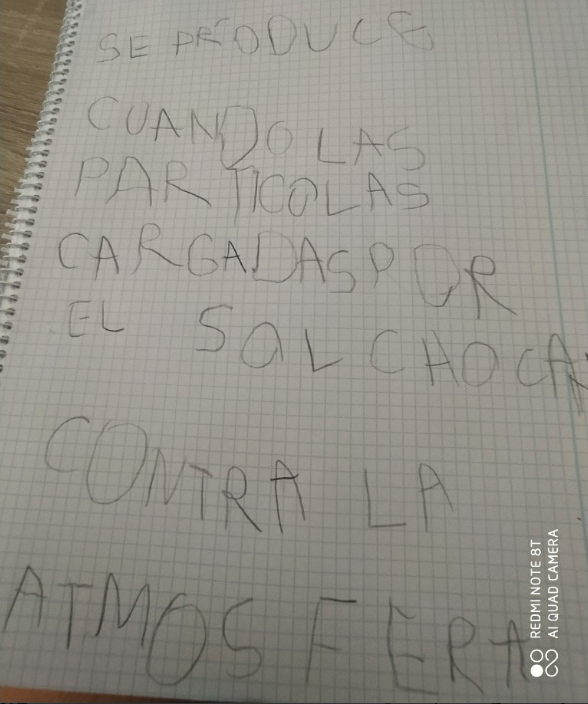 SE PRODUCE
CUANDO LAS
PARTICOLAS
CARGADAS POR
EL SOL CHOCAN
CONTRA LA
ATMOSFERA
REDMI NOTE 8T
AI QUAD CAMERA